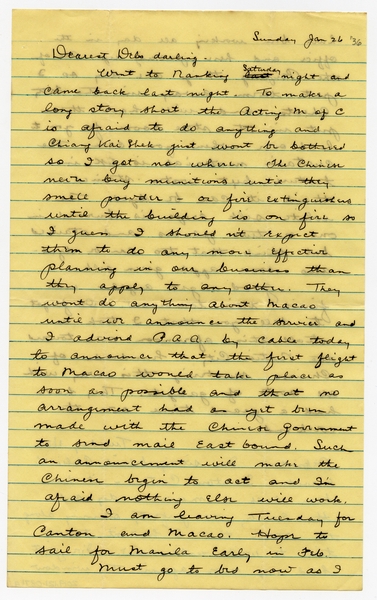 Sunday Jan 26 '36
Dearest Debs darling.
Went to Nanking Saturday night and
came back last night. To make a
long story short the Acting M of C
is afraid to do anything and
Chiang Kai Shek just wont be bothered
so I get no where. The Chinese
never buy munitions until they
smell powder - or fire extinguishers
until the building is on fire so
I guess I should n't expect
them to do any more effective
planning in our business than
they apply to any other. They
wont do anything about Macao
until we announce the service and
I advised P.A.A. by cable today
to announce that the first flight
to Macao would take place as
soon as possible and that no
arrangement had as yet been
made with the Chinese Government
to send mail East bound. Such
an announcement will make the
Chinese begin to act and I'm
afraid nothing else will work.
I am leaving Tuesday for
Canton and Macao. Hope to
sail for Manila Early in Feb.
Must go to bed now as I